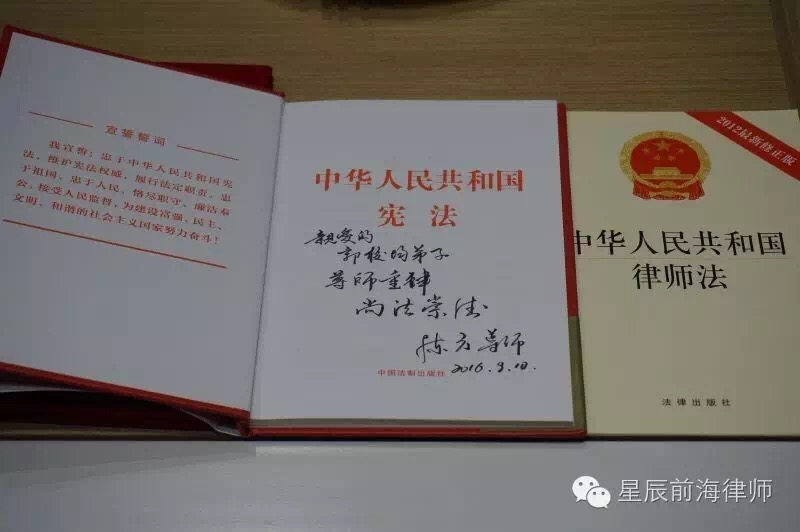 宣誓誓词
我宣誓：忠于中华人民共和国宪
法，维护宪法权威，履行法定职责，忠
于祖国、忠于人民，恪尽职守、廉洁奉
公，接受人民监督，为建设富强、民主、
文明、和谐的社会主义国家努力奋斗！
中华人民共和国
宪法
親爱的
郭校的弟子
尊师重律
尚法崇德
陈方尊师
2016.9.10.
中国法制出版社
2012最新修正版
中华人民共和国
律师法
法律出版社
星辰前海律师